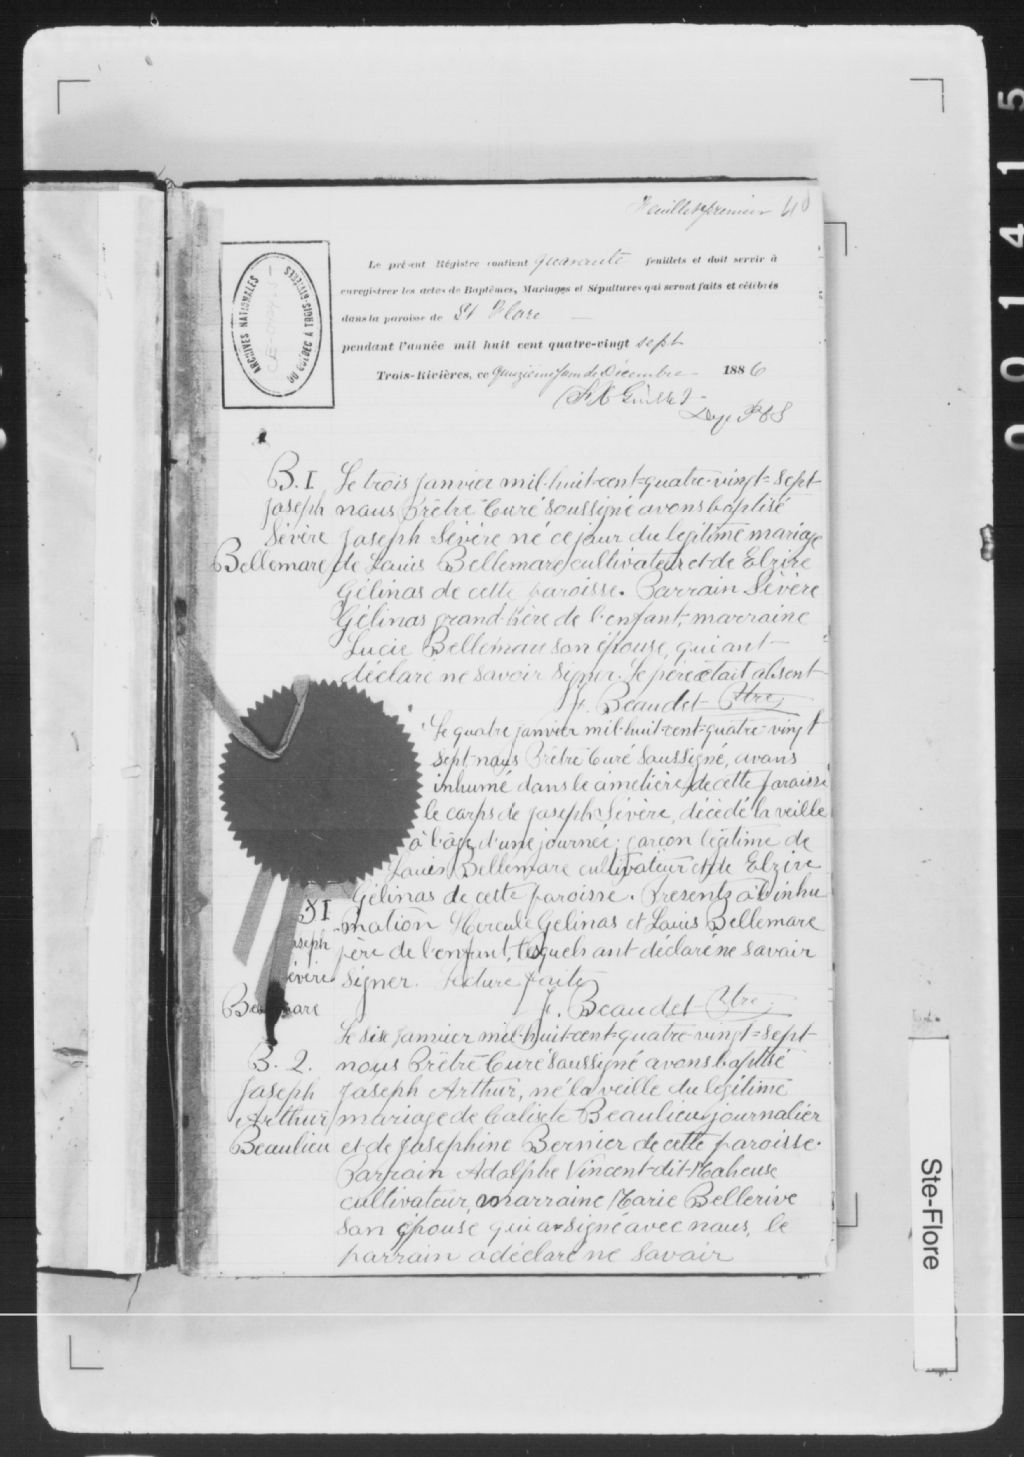 Feuillet premier 40
Le présent Régistre contient quarante feuillets et doit servir à
enregistrer les actes de Baptêmes, Mariages et Sépultures qui seront faits et célébrés
dans la paroisse de St Flore
pendant l'année mil huit cent quatre-vingt sept
Trois-Rivières, ce quinzième jour de Décembre 1886
Dep P C S
ARCHIVES NATIONALES
DU QUÉBEC A TROIS-RIVIÈRES
B. I Le trois janvier mil-huit-cent-quatre-vingt-sept
Joseph nous Prêtre Curé soussigné avons baptisé
Sévère Joseph Sévère né ce jour du légitime mariage
Bellemare de Louis Bellemare cultivateur et de Elzire
Gélinas de cette paroisse. Parrain Sévère
Gélinas grand-père de l'enfant, marraine
Lucie Bellemare son épouse, qui ont
déclaré ne savoir signer. Le père était absent
F. Beaudet Ptre
Le quatre janvier mil-huit-cent-quatre-vingt
sept nous Prêtre Curé soussigné, avons
inhumé dans le cimetière de cette paroisse
le corps de Joseph Sévère, décédé la veille
à l'âge d'une journée; garçon légitime de
Louis Bellemare cultivateur et de Elzire
Gélinas de cette paroisse. Présents à l'inhu
S I -mation Hercule Gélinas et Louis Bellemare
oseph père de l'enfant, lesquels ont déclaré ne savoir
évère signer. Lecture faite
Bellemare F. Beaudet Ptre
Le six janvier mil-huit-cent-quatre-vingt-sept
B. 2. nous Prêtre Curé soussigné avons baptisé
Joseph Joseph Arthur, né la veille du légitime
Arthur mariage de Calixte Beaulieu journalier
Beaulieu et de Josephine Bernier de cette paroisse.
Parrain Adolphe Vincent-dit-Maheuse
cultivateur, marraine Marie Bellerive
son épouse qui a signé avec nous, le
parrain a déclaré ne savoir
Ste-Flore